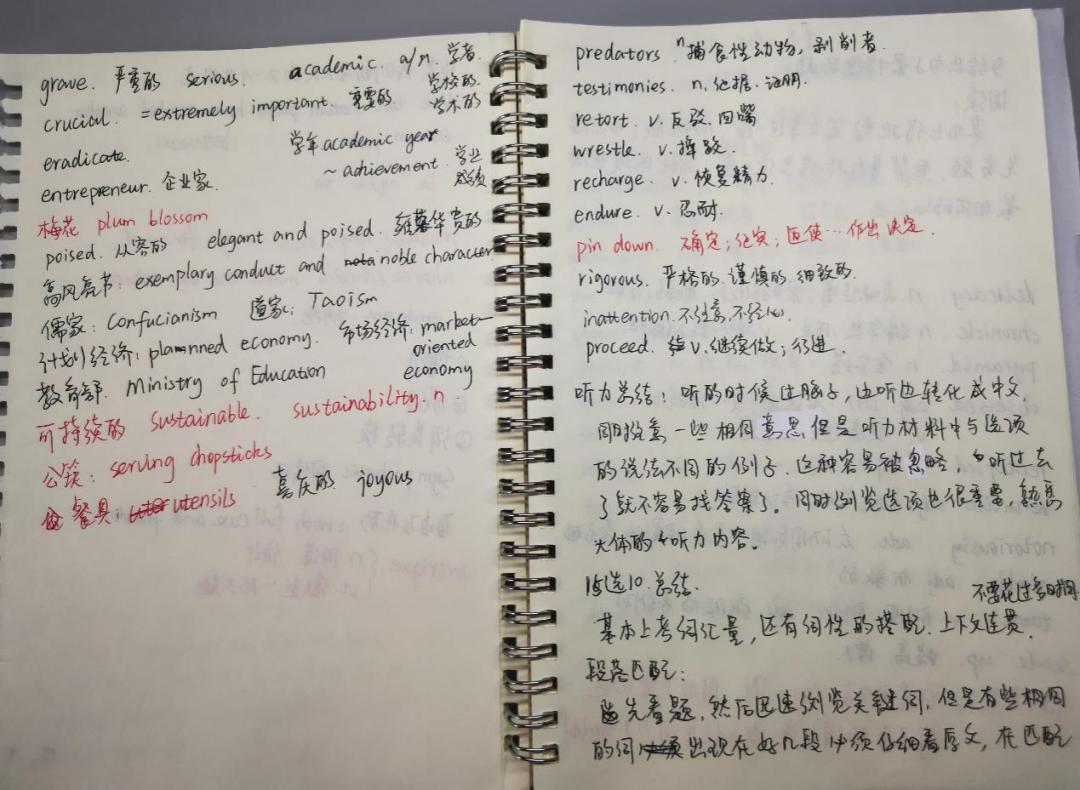 grave. 严重的 serious. academic. a/n. 学者
学校的
crucial. =extremely important. 重要的 学术的
eradicate. 学年 academic year
~ achievement. 学业
成绩
entrepreneur. 企业家.
梅花 plum blossom
poised. 从容的 elegant and poised. 雍华贵的
高风亮节: exemplary conduct and noble character
儒家: Confucianism 道家: Taoism
计划经济: plannned economy. 市场经济: market-
oriented
economy
教育部. Ministry of Education
可持续的 sustainable. sustainability. n.
公筷: serving chopsticks
餐具 utensils 喜庆的 joyous
predators n 捕食性动物, 剥削者.
testimonies. n. 证据. 证明.
retort. v. 反驳. 回嘴
wrestle. v. 摔跤.
recharge. v. 恢复精力.
endure. v. 忍耐.
pin down. 确定; 证实; 迫使…作出决定.
rigorous. 严格的. 谨慎的. 细致的.
inattention. 不注意, 不经心.
proceed. v. 继续做; 行进.
听力总结: 听的时候过脑子, 边听边转化成中文,
同时注意一些相同意思但是听力材料中与选项
的说法不同的例子. 这种容易被忽略. 听过去
了就不容易找答案了. 同时浏览选项也很重要, 熟悉
大体的听力内容.
15选10.总结. 不要花过多时间
基本上考词汇量, 还有词性的搭配. 上下文连贯.
段落匹配:
先看题, 然后迅速浏览关键词, 但是有些相同
的词出现在好几段必须仔细看原文, 在匹配